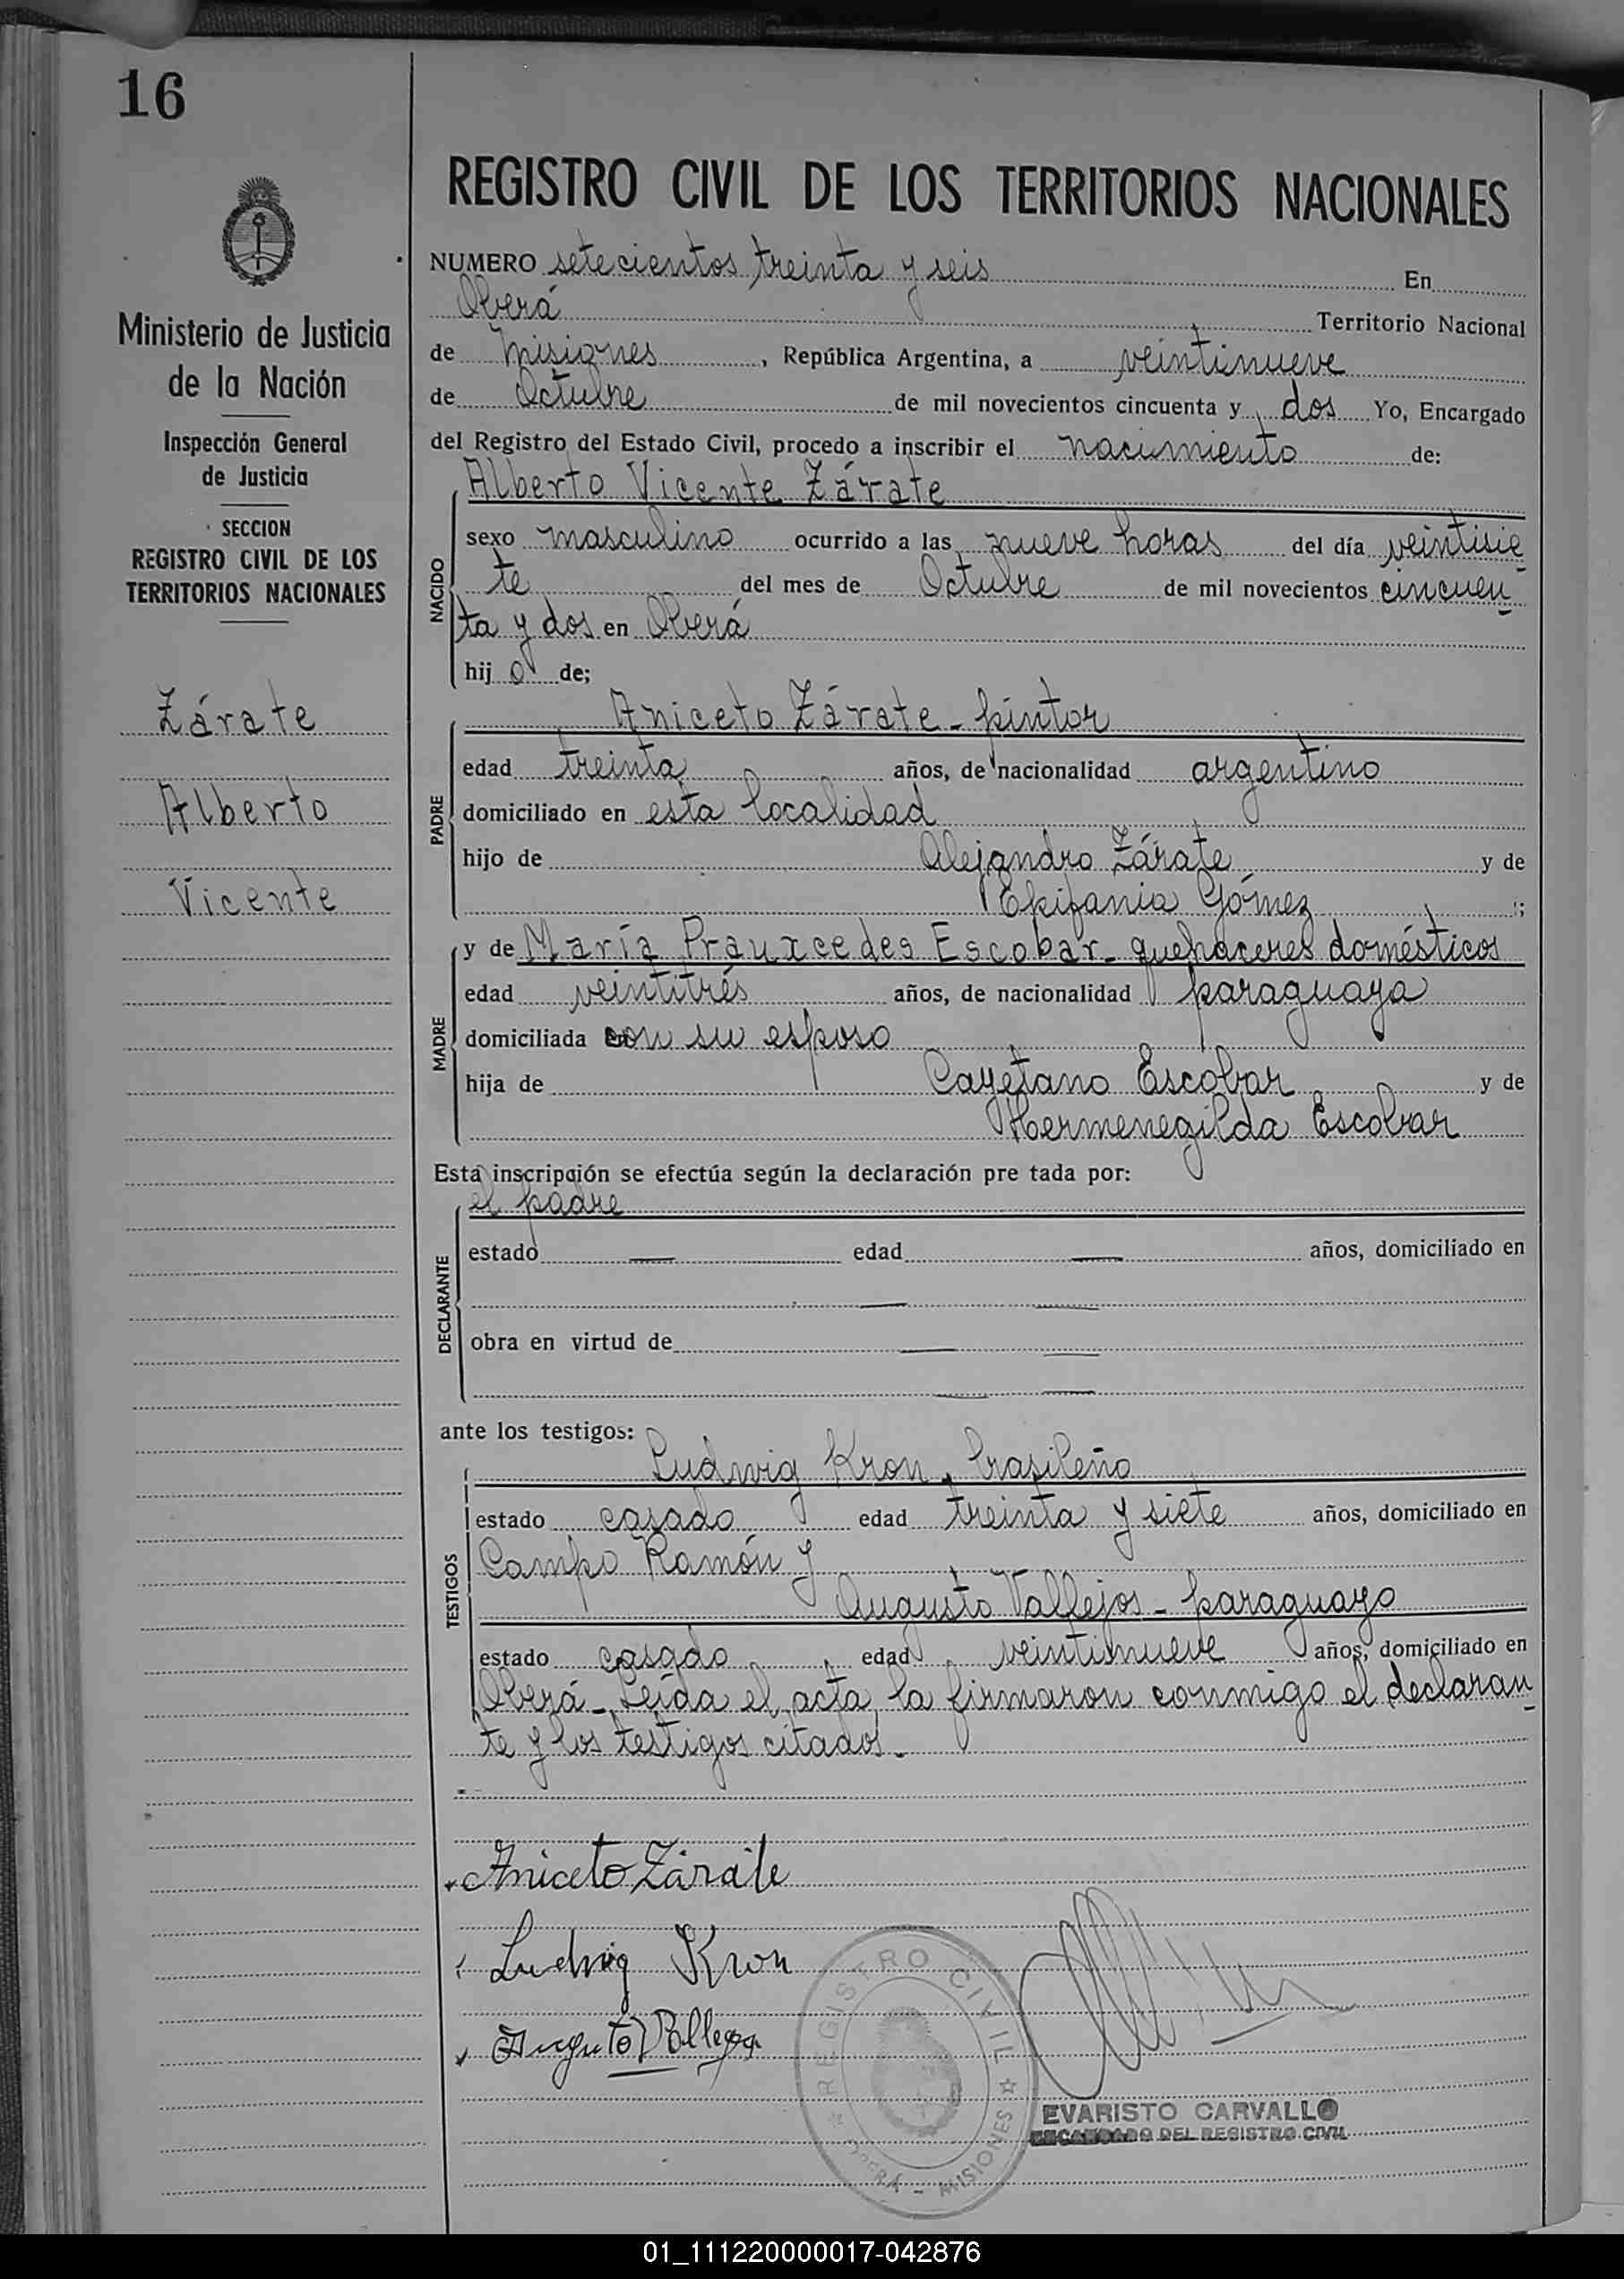 16
REGISTRO CIVIL DE LOS TERRITORIOS NACIONALES
Ministerio de Justicia
de la Nación
Inspección General
de Justicia
SECCION
REGISTRO CIVIL DE LOS
TERRITORIOS NACIONALES
Zárate
Alberto
Vicente
NUMERO setecientos treinta y seis En
Oberá Territorio Nacional
de Misiones, República Argentina, a veintinueve
de Octubre de mil novecientos cincuenta y dos Yo, Encargado
del Registro del Estado Civil, procedo a inscribir el nacimiento de:
NACIDO
Alberto Vicente Zárate
sexo masculino ocurrido a las nueve horas del día veintisie
te del mes de Octubre de mil novecientos cincuen
ta y dos en Oberá
hij o de;
PADRE
Aniceto Zárate - pintor
edad treinta años, de nacionalidad argentino
domiciliado en esta localidad
hijo de Alejandro Zárate y de
Epifania Gómez ;
MADRE
y de María Prauxcedes Escobar - quehaceres domésticos
edad veintitrés años, de nacionalidad paraguaya
domiciliada con su esposo
hija de Cayetano Escobar y de
Hermenegilda Escobar
Esta inscripción se efectúa según la declaración pre tada por:
DECLARANTE
el padre
estado — edad — años, domiciliado en
— —
obra en virtud de — —
— —
ante los testigos:
TESTIGOS
Ludwig Kron - brasileño
estado casado edad treinta y siete años, domiciliado en
Campo Ramón y
Augusto Vallejos - paraguayo
estado casado edad veintinueve años, domiciliado en
Oberá - Leída el acta la firmaron conmigo el declaran
te y los testigos citados.-
Aniceto Zárate
Ludwig Kron
Augusto Vallejos
REGISTRO CIVIL
OBERÁ - MISIONES
EVARISTO CARVALLO
ENCARGADO DEL REGISTRO CIVIL
01_111220000017-042876